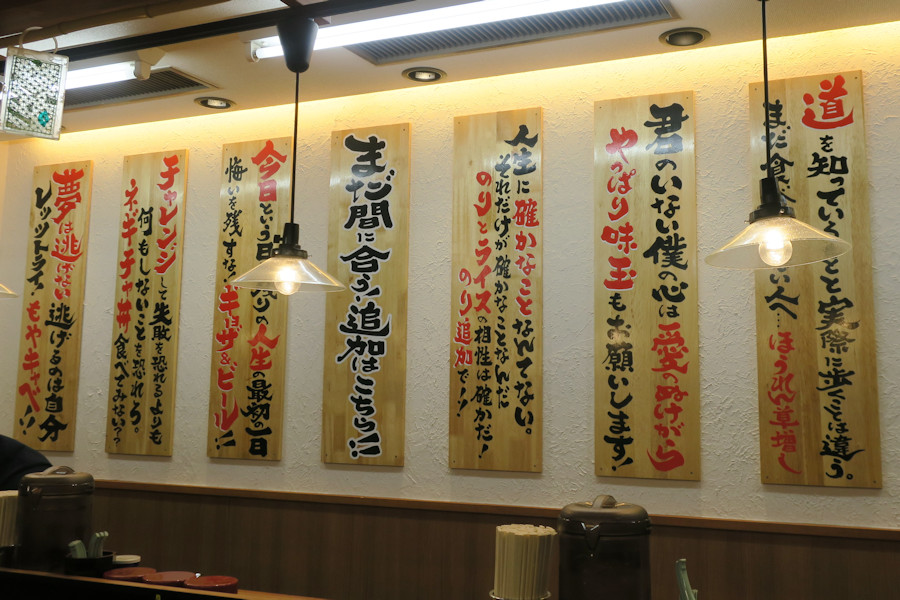 道を知っていることと実際に歩くことは違う。
まだ食べ
ない人…ほうれん草増し
君のいない僕の心は愛のぬけがら
やっぱり味玉もお願いします!
人生に確かなことなんてない。
それだけが確かなことなんだ
のりとライスの相性は確かだ!
のり追加で!!
まだ間に合う!追加はこちら!!
今日という日は残りの人生の最初の一日
悔いを残すな!ギョーザ&ビール!!
チャレンジして失敗を恐れるよりも
何もしないことを恐れろ。
ネギチャ丼食べてみない?
夢は逃げない逃げるのは自分
レッツトライ!もやキャベ!!